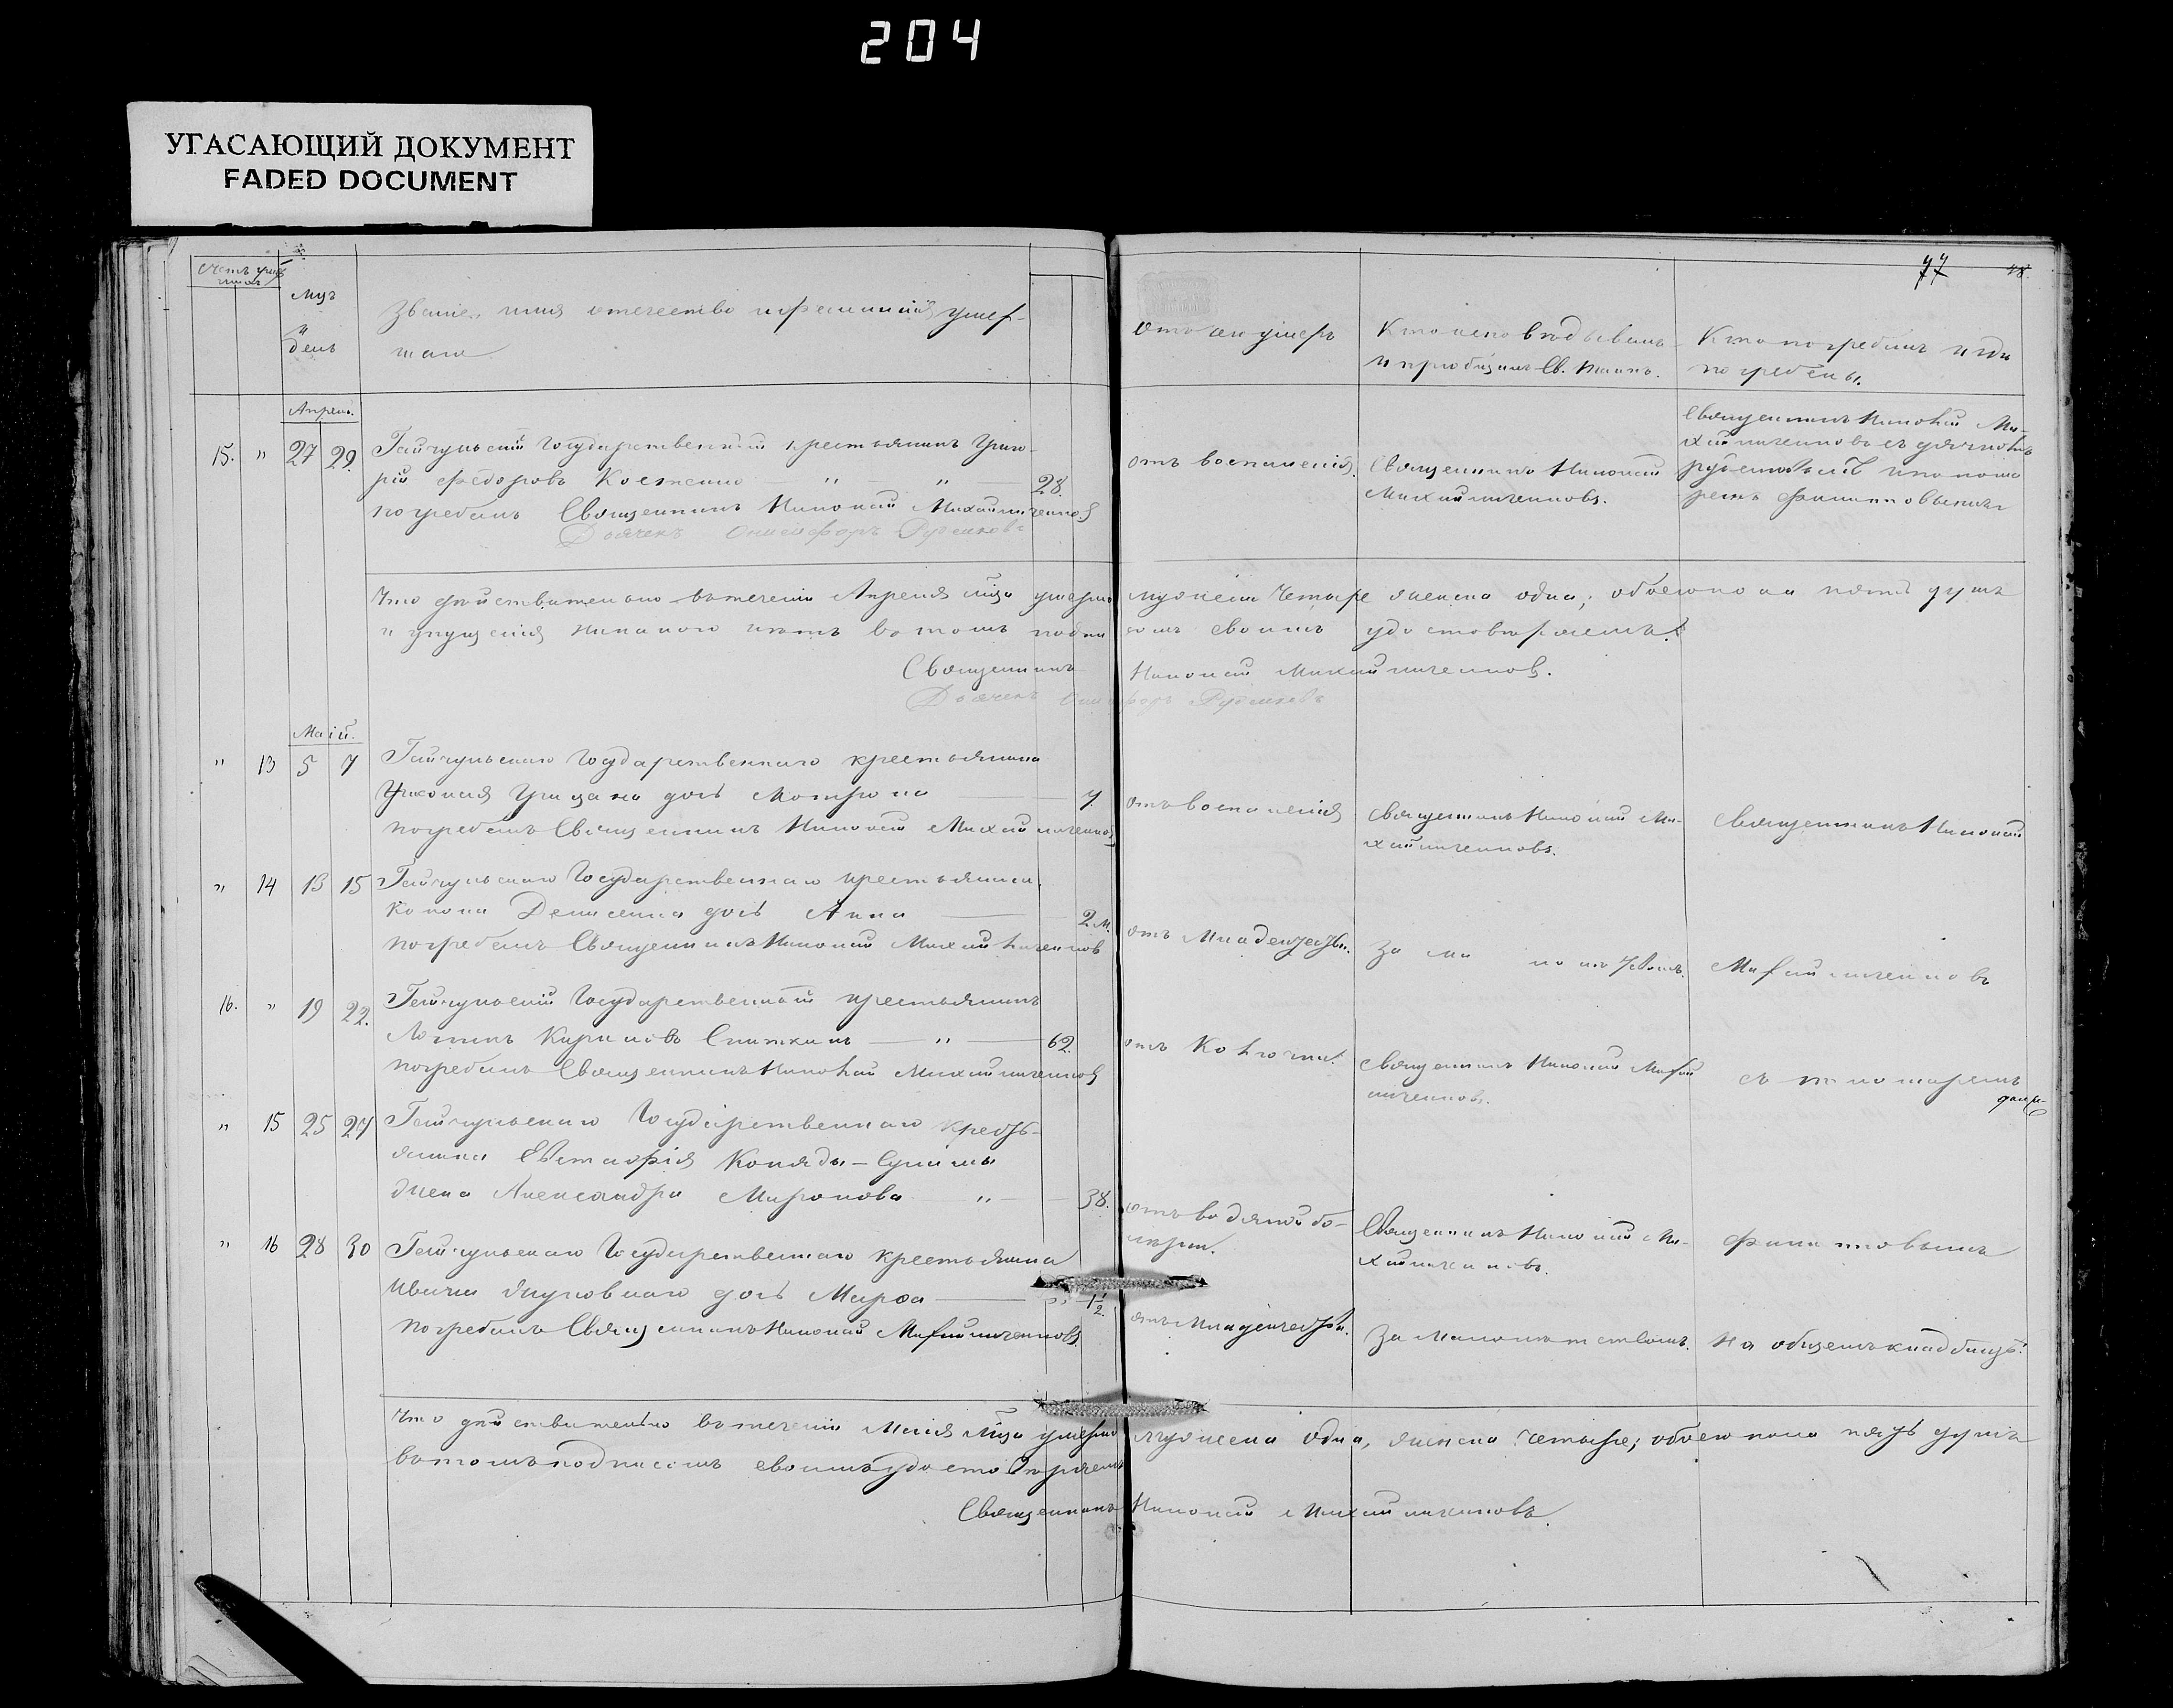 204
УГАСАЮЩИЙ ДОКУМЕНТ
FADED DOCUMENT
77
Счетъ
Мцъ
и
день
Званіе, имя отчество и фамилия умер-
шаго
Отъ чего умеръ
Кто исповѣдывалъ
и пріобщалъ Св. Таинъ.
Кто погребалъ и гдѣ
погребены.
Апрель.
15. " 27 29.
Гайчульскій Государственный крестьянинъ Григо-
рій Федоровъ Костенко " " 28.
погребалъ Священникъ Николай Михайличенков
Дьячекъ Онисифоръ Рудиковъ
отъ воспаленія.
Священникъ Николай
Михайличенковъ.
Священникъ Николай Ми-
хайличенковъ съ дьячкомъ
и пономо
ремъ Филиповымъ
Что дѣйствительно въ теченіи Апреля мца умерло мужеска четыре женска одна; обоего пола пять душъ
и упущенія никакого нѣтъ въ томъ подписомъ своимъ удостовѣряемъ.
Священникъ Николай Михайличенков.
Дьячекъ Онисифоръ Рудиковъ
Май.
" 13 5 7
Гайчульскаго Государственнаго крестьянина
Грицана дочь Мотрона 7.
погребалъ Священникъ Николай Михайличенков
отъ воспаленія
Священникъ Николай Ми-
хайличенковъ.
Священникъ Николай
" 14 13 15
Гайчульскаго Государственнаго крестьянина
Конона Денисенка дочь Анна 2 м.
погребалъ Священникъ Николай Михайличенков
отъ Младенчества.
За малолѣтствомъ.
Михайличенковъ
16. " 19 22.
Гайчульскій Государственный крестьянинъ
Логинъ Кириловъ " 62.
погребалъ Священникъ Николай Михайличенков
отъ
Священникъ Николай Михай
личенковъ.
съ пономаремъ
" 15 25 27
Гайчульскаго Государственнаго кресть-
янина Евстафія Коляды-
жена Александра Миронова " 38.
отъ водяной бо-
лѣзни.
Священникъ Николай Ми-
хайличенковъ.
Филиповымъ
" 16 28 30
Гайчульскаго Государственнаго крестьянина
Ивана дочь Марфа 1½.
погребалъ Священникъ Николай Михайличенковъ
отъ Младенчества.
За Малолѣтствомъ.
На общемъ кладбищѣ.
Что дѣйствительно въ теченіи Маія мца умерло мужеска одна, женска четыре; обоего пола пять душъ
въ томъ подписомъ своимъ удостовѣряемъ
Священникъ Николай Михайличенковъ.